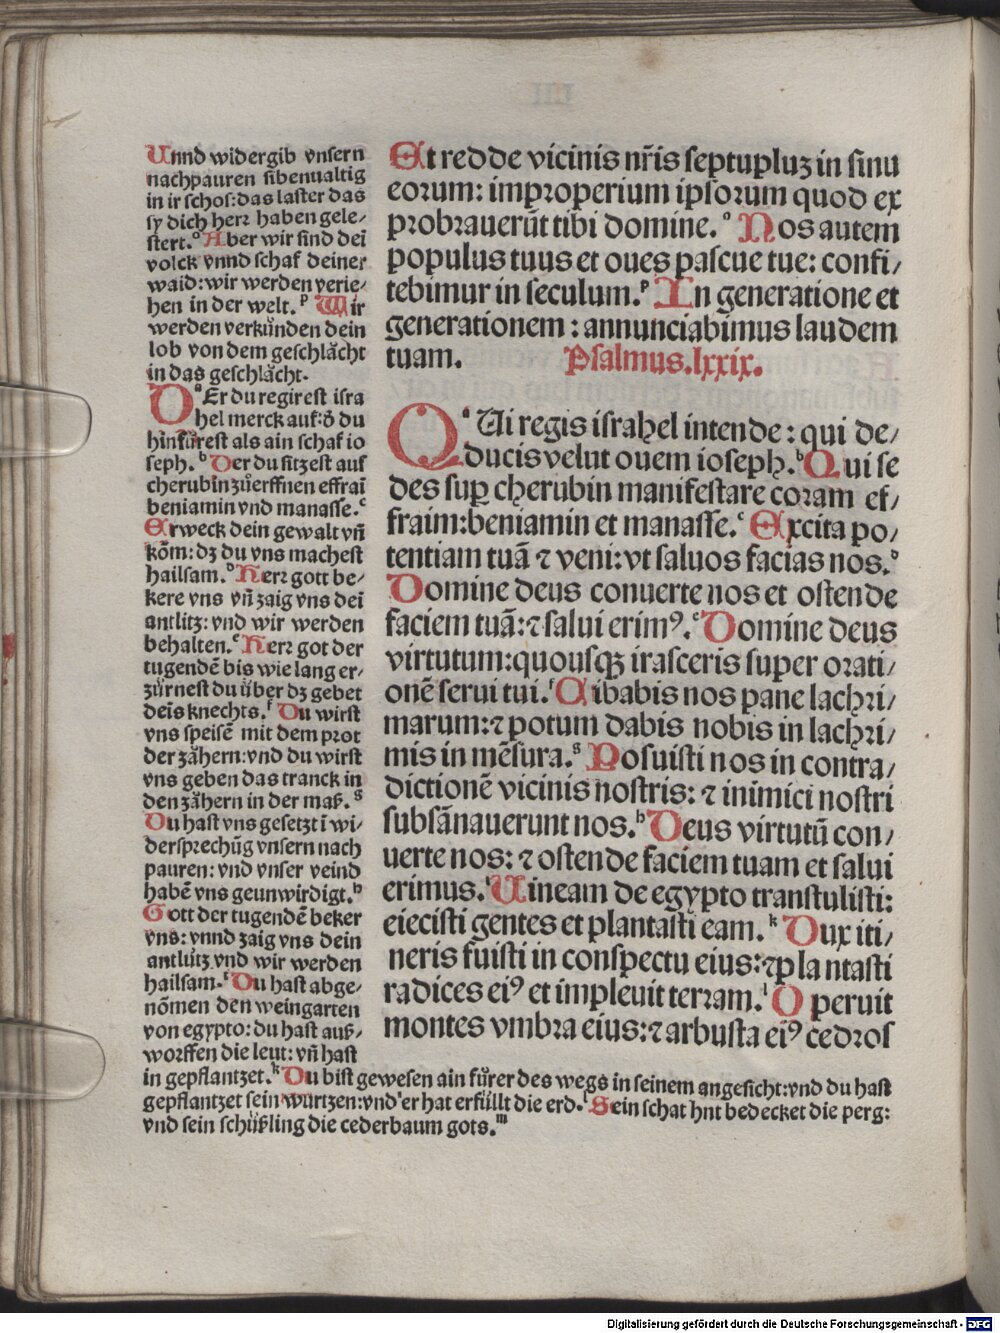 Unnd widergib vnsern
nachpauren sibenualtig
in ir schos: das laster das
sy dich herr haben gele⸗
stert.° Aber wir sind dei
volck vnnd schaf deiner
waid: wir werden verie⸗
hen in der welt.ᵖ Wir
werden verkünden dein
lob von dem geschlächt
in das geschlächt.
Dᵃ Er du regirest isra
hel merck auf: ð du
hinfürest als ain schaf io
seph.ᵇ Der du sitzest auf
cherubin zůerffnen effrai
beniamin vnd manasse.ᶜ
Erweck dein gewalt vñ
kõm: dz du vns machest
hailsam.ᵈ Herr gott be⸗
kere vns vñ zaig vns dei
antlitz: vnd wir werden
behalten.ᵉ Herr got der
tugendẽ bis wie lang er⸗
zürnest du über dz gebet
deis knechts.ᶠ Du wirst
vns speisẽ mit dem prot
der zähern: vnd du wirst
vns geben das tranck in
den zähern in der maß.ᵍ
Du hast vns gesetzt ĩ wi⸗
dersprechũg vnsern nach
pauren: vnd vnser veind
habẽ vns geunwirdigt.ʰ
Gott der tugendẽ beker
vns: vnnd zaig vns dein
antlütz vnd wir werden
hailsam.ⁱ Du hast abge⸗
nõmen den weingarten
von egypto: du hast auß⸗
worffen die leut: vñ hast
in gepflantzet.ᵏ Du bist gewesen ain fürer des wegs in seinem angesicht: vnd du hast
gepflantzet sein wurtzen: vnd er hat erfüllt die erd.ˡ Sein schat hnt bedecket die perg:
vnd sein schüßling die cederbaum gots.ᵐ
Et redde vicinis nr̃is septupluʒ in sinu
eorum: improperium ipsorum quod ex
probrauerũt tibi domine.° Nos autem
populus tuus et oues pascue tue: confi⸗
tebimur in seculum.ᵖ In generatione et
generationem: annunciabimus laudem
tuam. Psalmus.lxxix.
Qᵃ Ui regis israhel intende: qui de⸗
ducis velut ouem ioseph.ᵇ Qui se
des suꝑ cherubin manifestare coram ef⸗
fraim: beniamin et manasse.ᶜ Excita po⸗
tentiam tuã ⁊ veni: vt saluos facias nos.ᵈ
Domine deus conuerte nos et ostende
faciem tuã: ⁊ salui erimꝰ.ᵉ Domine deus
virtutum: quousqꝫ irasceris super orati⸗
onẽ serui tui.ᶠ Cibabis nos pane lachri⸗
marum: ⁊ potum dabis nobis in lachri⸗
mis in mẽsura.ᵍ Posuisti nos in contra⸗
dictionẽ vicinis nostris: ⁊ inimici nostri
subsãnauerunt nos.ʰ Deus virtutũ con⸗
uerte nos: ⁊ ostende faciem tuam et salui
erimus.ⁱ Uineam de egypto transtulisti:
eiecisti gentes et plantasti eam.ᵏ Dux iti⸗
neris fuisti in conspectu eius: ⁊ plantasti
radices eiꝰ et impleuit terram.ˡ Operuit
montes vmbra eius: ⁊ arbusta eiꝰ cedros
Digitalisierung gefördert durch die Deutsche Forschungsgemeinschaft - DFG